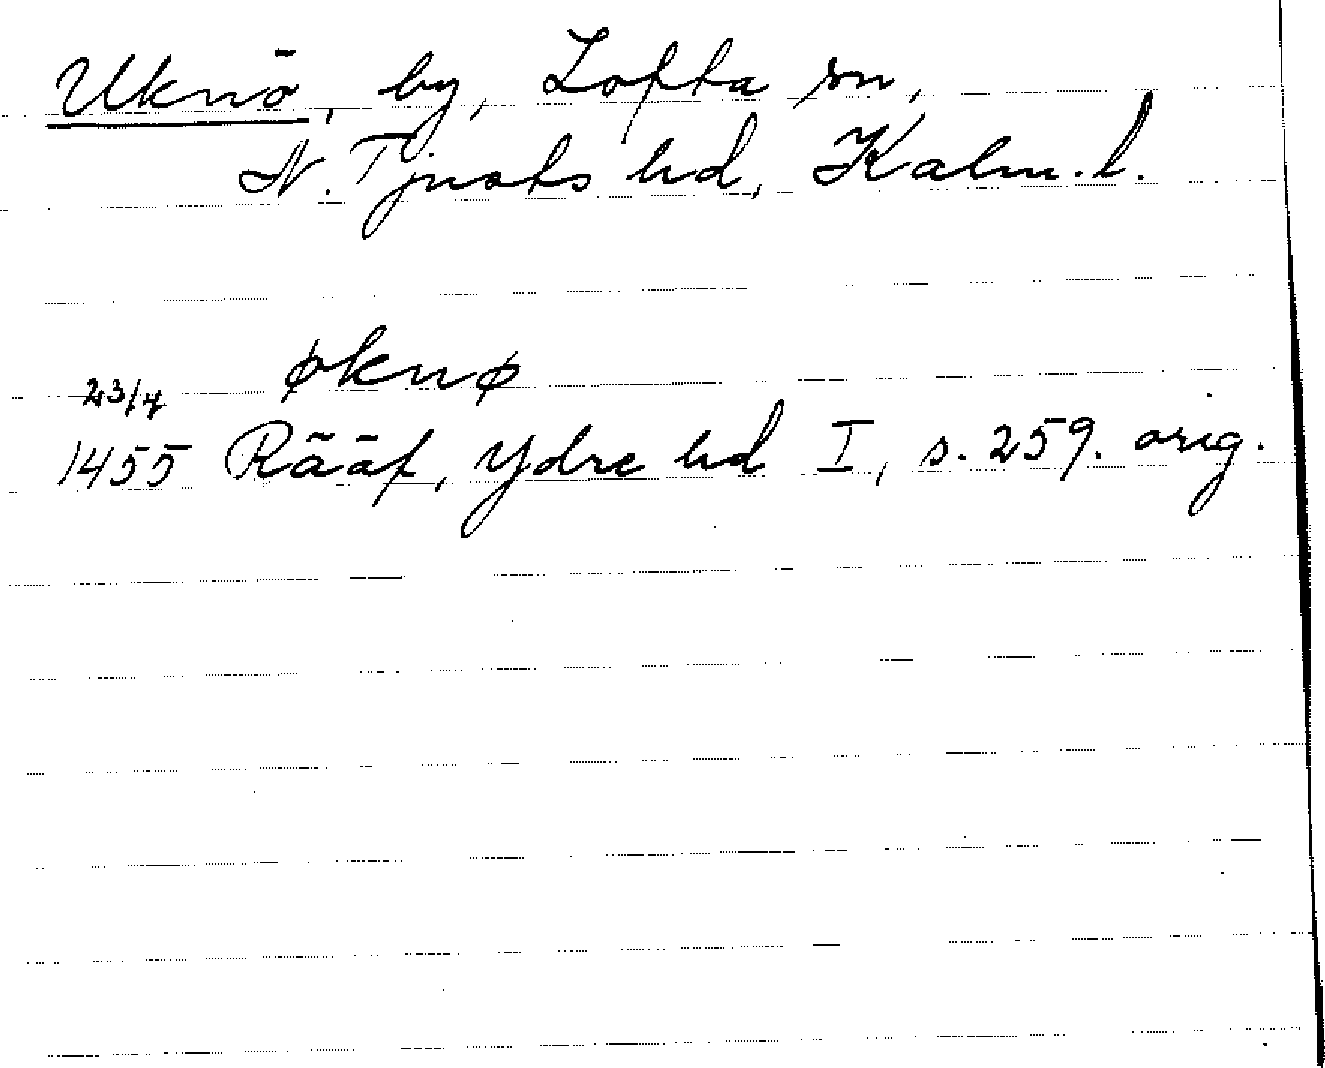 Uknö, by, Lofta sn,
N. Tjusts hd, Kalm. l.
øknø
23/4
1455 Rääf, Ydre hd I, s. 259. orig.